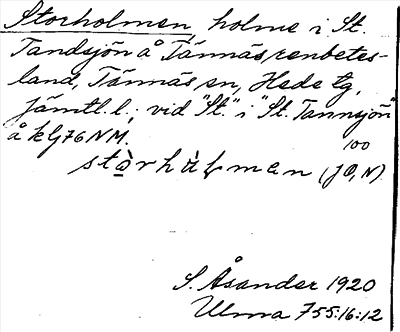 Storholmen, holme i St.
Tandsjön å Tännäs renbetes-
land, Tännäs sn, Hede tg,
Jämtl. l.; vid "St." i "St. Tannsjön"
å kbl 76 NM.
100
(JO, N).
S. Åsander 1920
Ulma 755:16:12